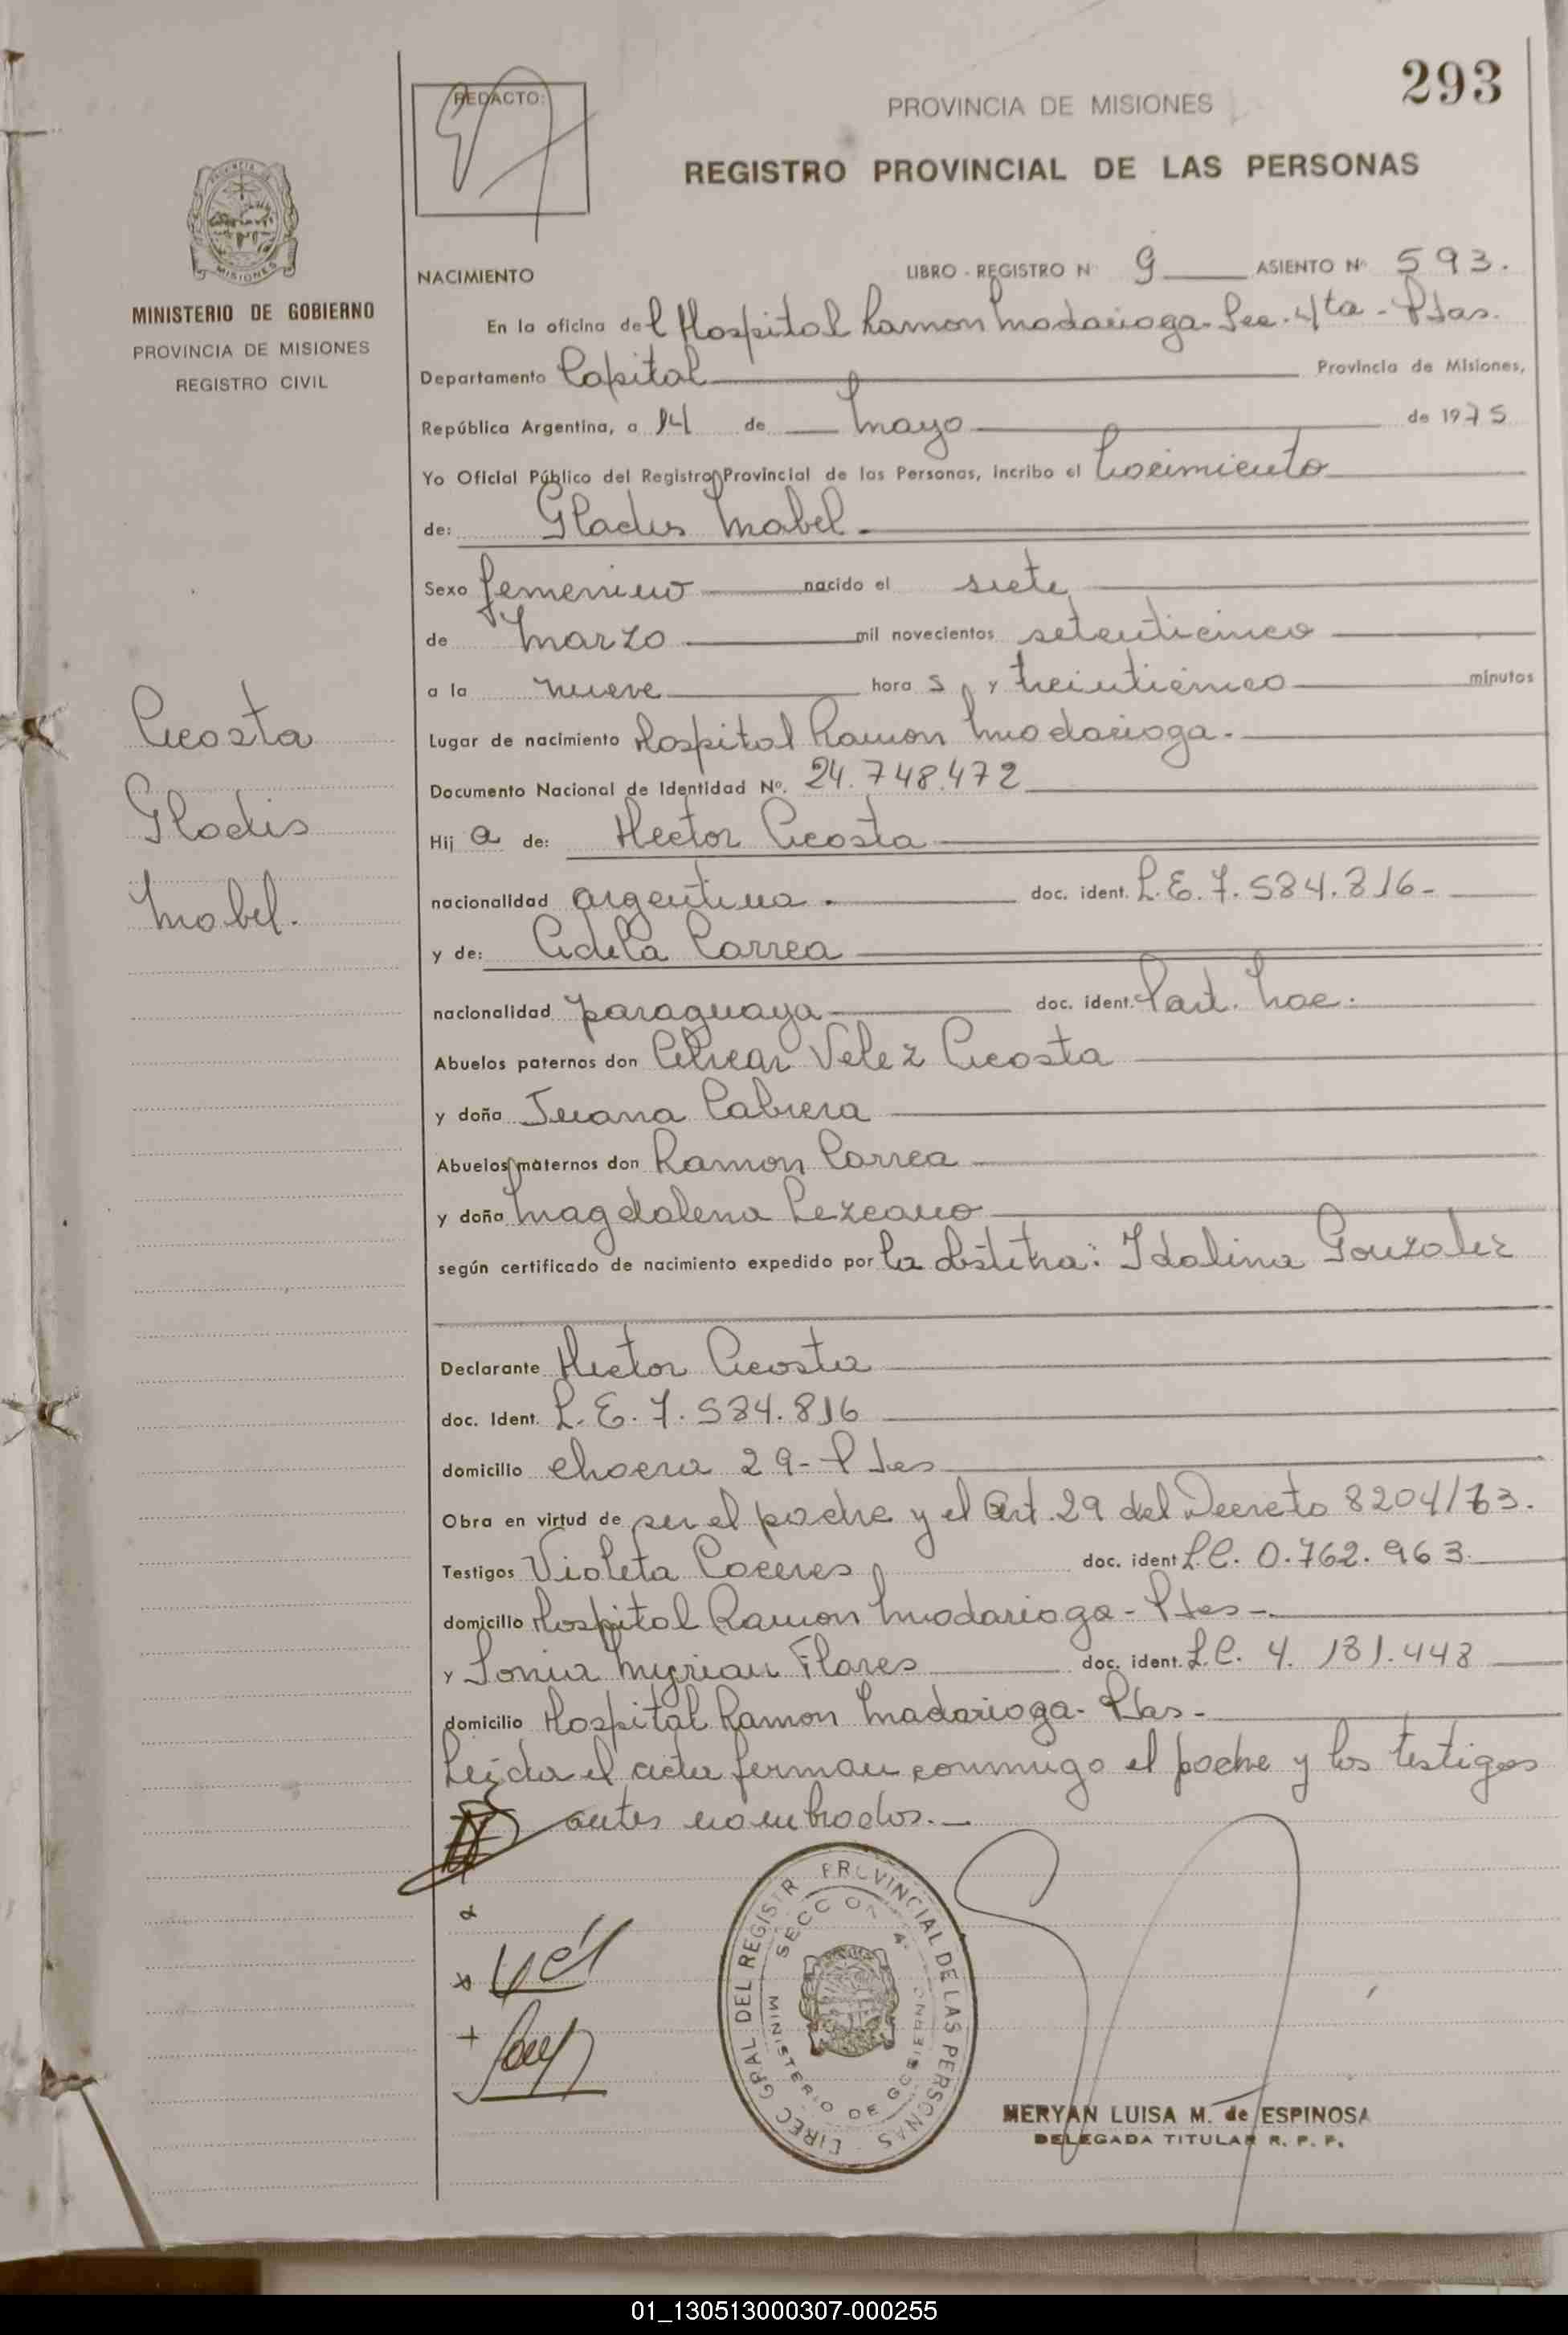 293
REDACTO:
PROVINCIA DE MISIONES
REGISTRO PROVINCIAL DE LAS PERSONAS
PROVINCIA
MISIONES
MINISTERIO DE GOBIERNO
PROVINCIA DE MISIONES
REGISTRO CIVIL
NACIMIENTO LIBRO - REGISTRO Nº 9 ASIENTO Nº 593.
En la oficina del Hospital Ramon Madariaga - Sec. 4ta - Pdas.
Departamento Capital Provincia de Misiones,
República Argentina, a 14 de Mayo de 1975
Yo Oficial Público del Registro Provincial de las Personas, incribo el Nacimiento
de: Gladis Mabel.
Sexo femenino nacido el siete
de Marzo mil novecientos setenticinco
a la nueve hora s y treinticinco minutos
Lugar de nacimiento Hospital Ramon Madariaga.
Documento Nacional de Identidad Nº. 24.748.472
Acosta
Gladis
Mabel.
Hij a de: Hector Acosta
nacionalidad argentina. doc. ident. L.E. 7.584.816-
y de: Adela Correa
nacionalidad paraguaya doc. ident. Part. Nac.
Abuelos paternos don Velez Acosta
y doña Juana Cabrera
Abuelos maternos don Ramon Correa
y doña Magdalena Lezcano
según certificado de nacimiento expedido por la obstetra: Idalina Gonzalez
Declarante Hector Acosta
doc. Ident. L.E. 7.584.816
domicilio chacra 29- Pdas
Obra en virtud de ser el padre y el Art. 29 del Decreto 8204/63.
Testigos Violeta Caceres doc. ident L.C. 0.762.963
domicilio Hospital Ramon Madariaga - Pdas-
y Sonia Myrian Flores doc. ident. L.C. 4.181.448
domicilio Hospital Ramon Madariaga- Pdas-
Leida el acta firman conmigo el padre y los testigos
antes nombrados.
DIREC GRAL DEL REGISTR PROVINCIAL DE LAS PERSONAS
SECCION 4ª
MINISTERIO DE GOBIERNO
MERYAN LUISA M. de ESPINOSA
DELEGADA TITULAR R. P. P.
01_130513000307-000255